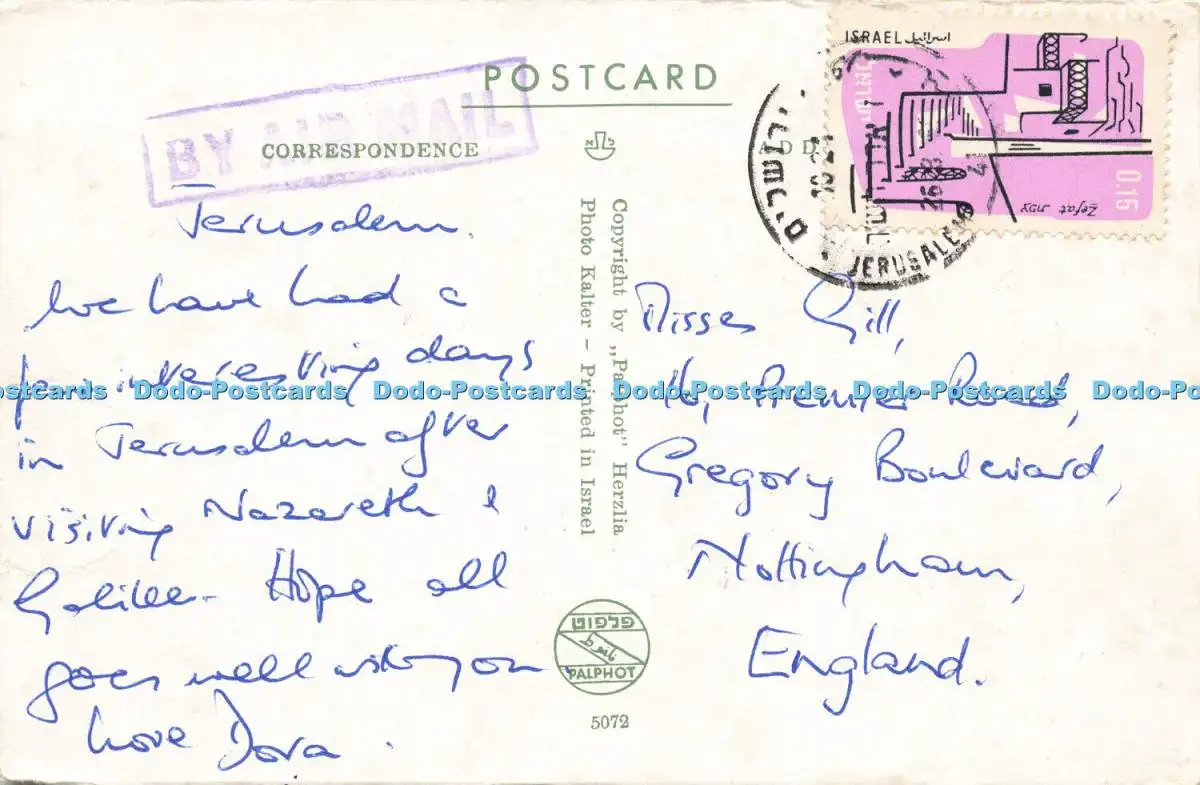 POSTCARD
BY AIR MAIL
CORRESPONDENCE
Jerusalem.
We have had a
few interesting days
in Jerusalem after
visiting Nazareth &
Galilee. Hope all
goes well with you
Love Dora.
Copyright by „Palphot" Herzlia
Photo Kalter – Printed in Israel
פלפוט
PALPHOT
5072
ISRAEL اسرائيل
0.15
Zefat צפת
ירושלים
JERUSALEM
Misses Gill,
16, Premier Road,
Gregory Boulevard,
Nottingham,
England.
Dodo-Postcards Dodo-Postcards Dodo-Postcards Dodo-Postcards Dodo-Postcards Dodo-Postcards